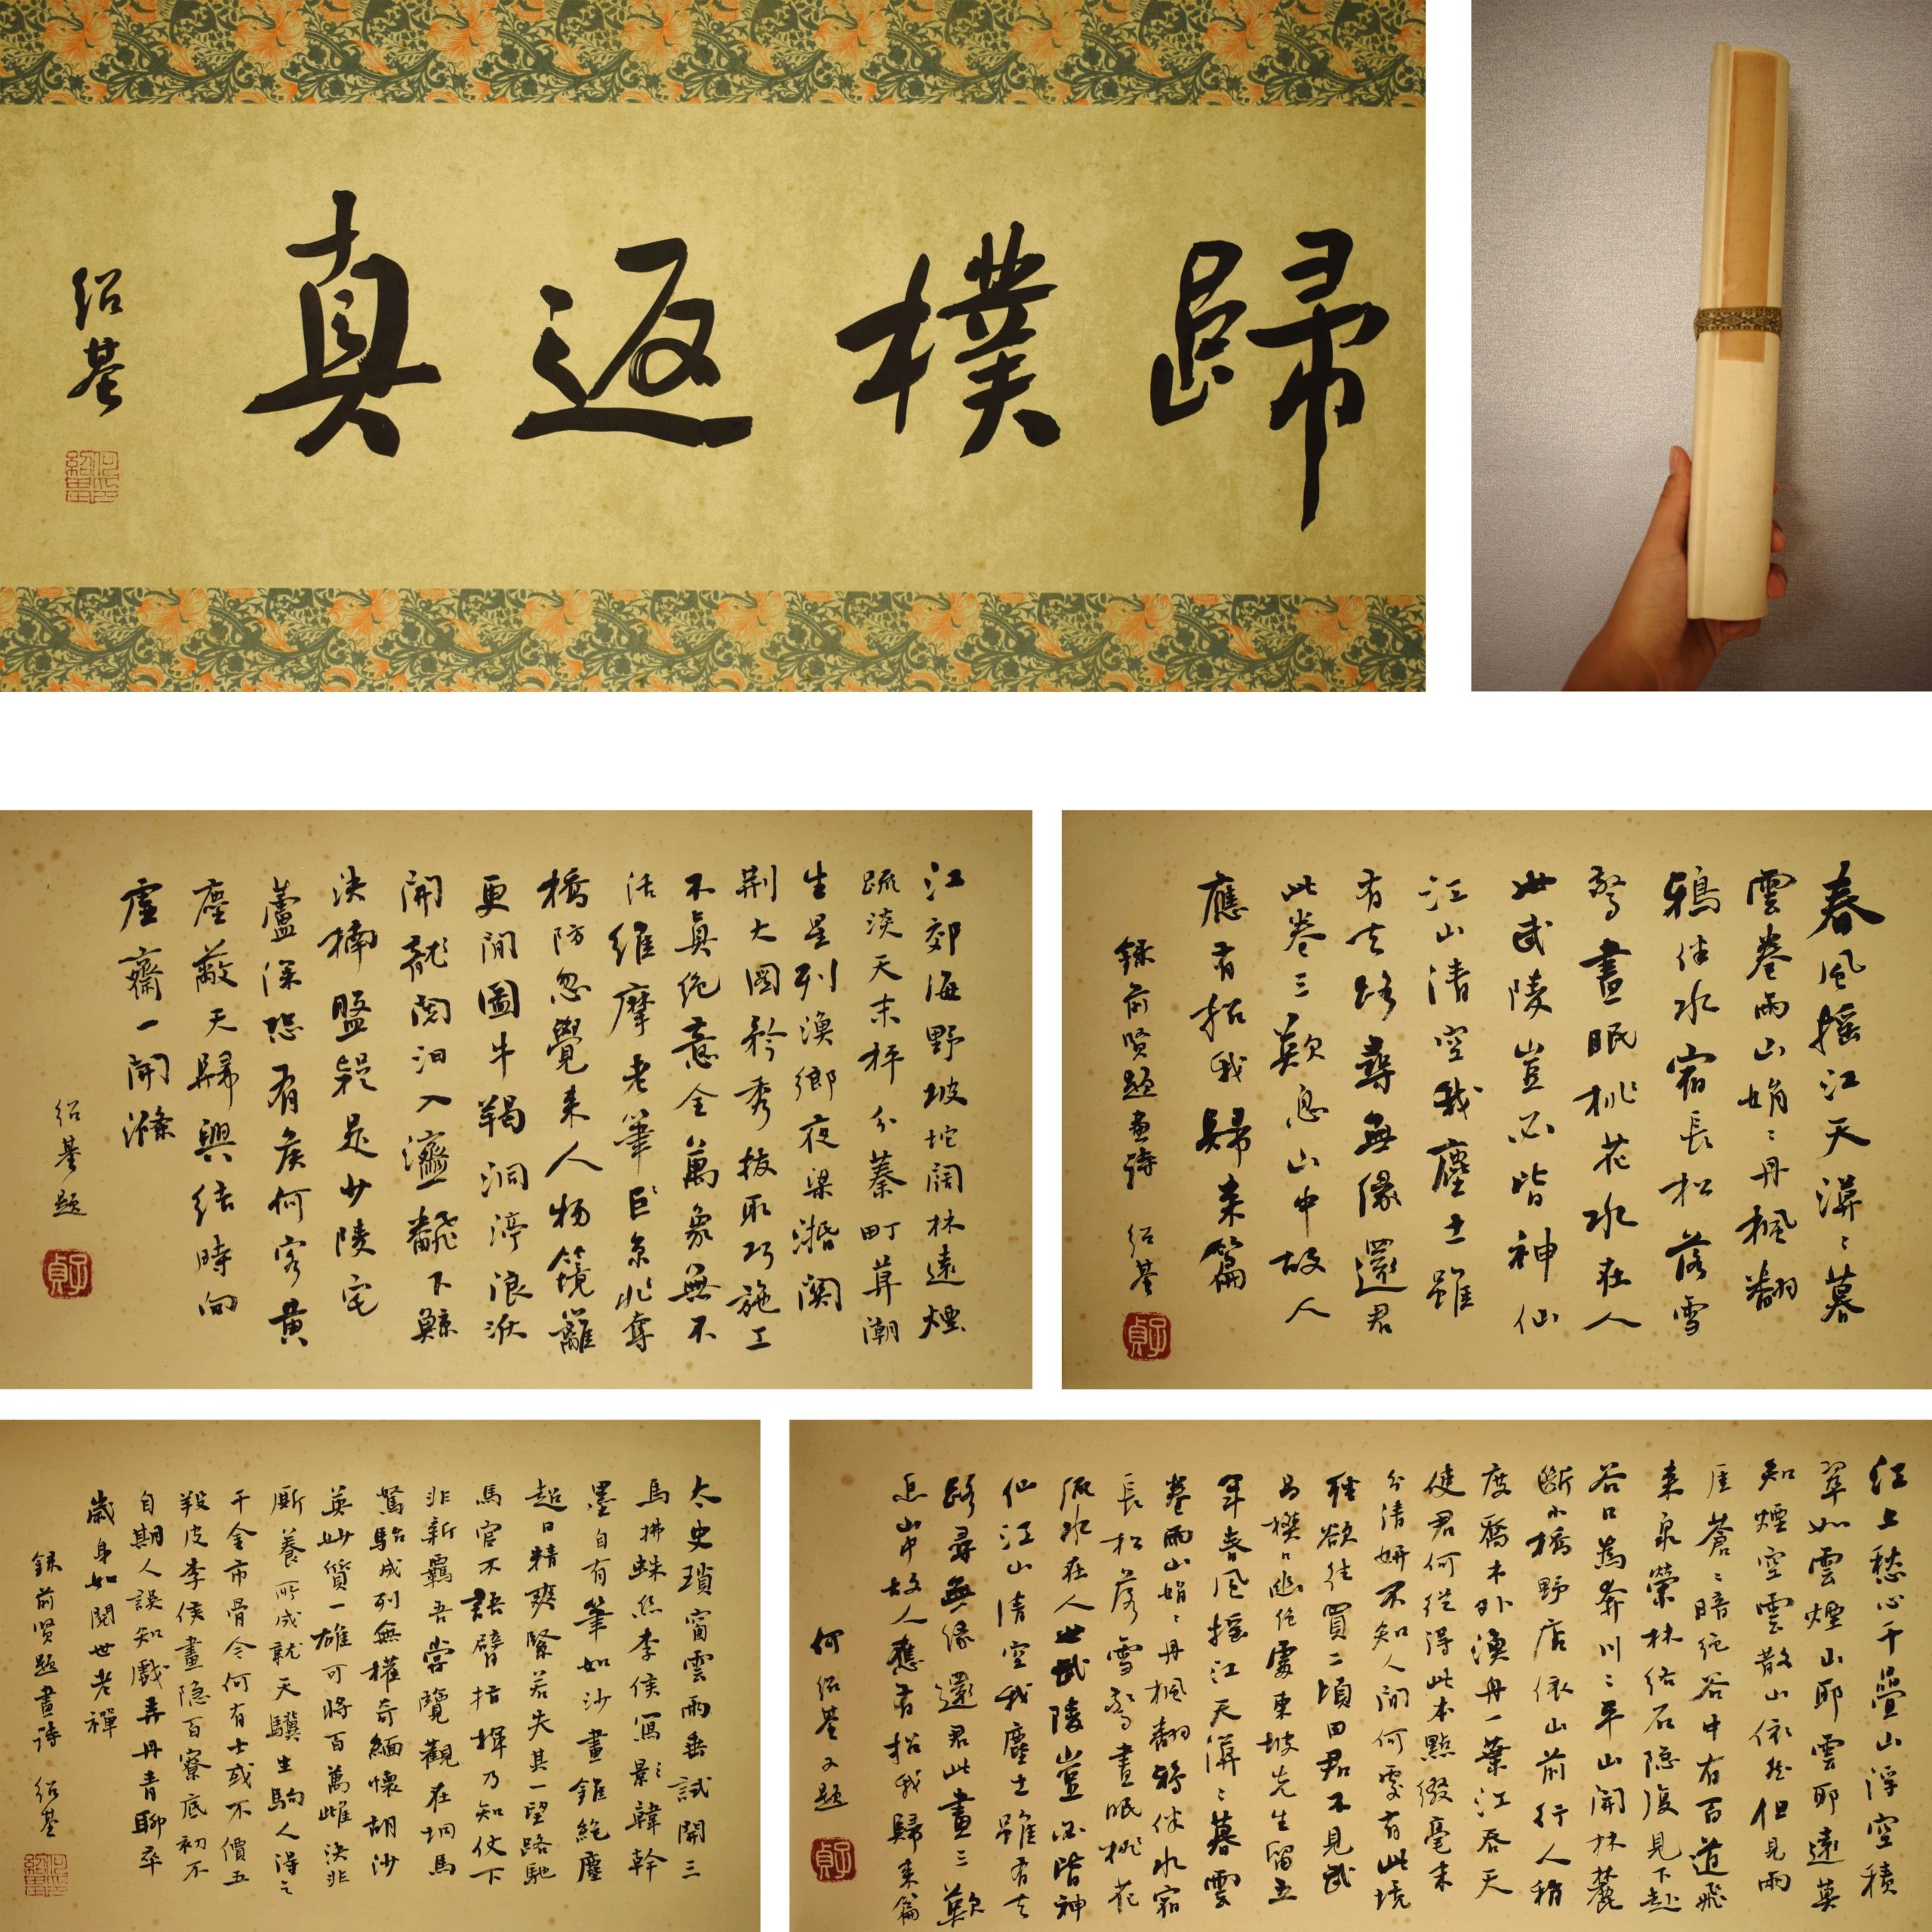 歸樸返真
紹基
何紹基印
春風搖江天漠〻暮
雲卷雨山娟〻丹楓翻
鴉伴水宿長松落雪
驚晝眠桃花水在人
世武陵豈必皆神仙
江山清空我塵土雖
有去路尋無緣還君
此卷三歎息山中故人
應有招我歸來篇
錄前賢題畫詩 紹基
子貞
江郊海野坡坨闊林遠煙
疏淡天末枰分蓁町葑潮
生星列漁鄉夜梁湣闋
荆大圖矜秀拔取巧施工
不真絕意全萬象無不
活維摩老筆巨京兆奪
橋防忽覺來人物鏡籬
更閒圖牛羯洞渟浪派
開龍閟汨入灣翻下鯨
決楠盤疑是少陵宅
蘆深恐有矦何客黃
塵蔽天歸興結時向
虛齋一開滌
紹基題
子貞
江上愁心千疊山浮空積
翠如雲煙山耶雲耶遠莫
知煙空雲散山依然但見兩
厓蒼〻暗絕谷中有百道飛
來泉縈林絡石隱復見下赴
谷口為奔川〻平山開林麓
斷小橋野店依山前行人稍
度喬木外漁舟一葉江吞天
使君何從得此本點綴毫末
分清妍不知人間何處有此境
徑欲往買二頃田君不見武
昌樊口幽絕處東坡先生留五
年春風搖江天漠〻暮雲
卷雨山娟〻丹楓翻鴉伴水宿
長松落雪驚晝眠桃花
流水在人世武陵豈必皆神
仙江山清空我塵土雖有去
路尋無緣還君此畫三歎
息山中故人應有招我歸來篇
何紹基又題
子貞
太史瑣窗雲雨垂試開三
馬拂蛛絲李侯寫影韓幹
墨自有筆如沙畫錐絕塵
超日精爽緊若失其一望路馳
馬官不語臂指揮乃知仗下
非新羈吾嘗覽觀在坰馬
駑駘成列無權奇緬懷胡沙
英妙質一雄可將百萬雌決非
廝養所成就天驥生駒人得之
千金市骨今何有士或不價五
羖皮李侯畫隱百寮底初不
自期人誤知戲弄丹青聊卒
歲身如閱世老禪
錄前賢題畫詩 紹基
何紹基印